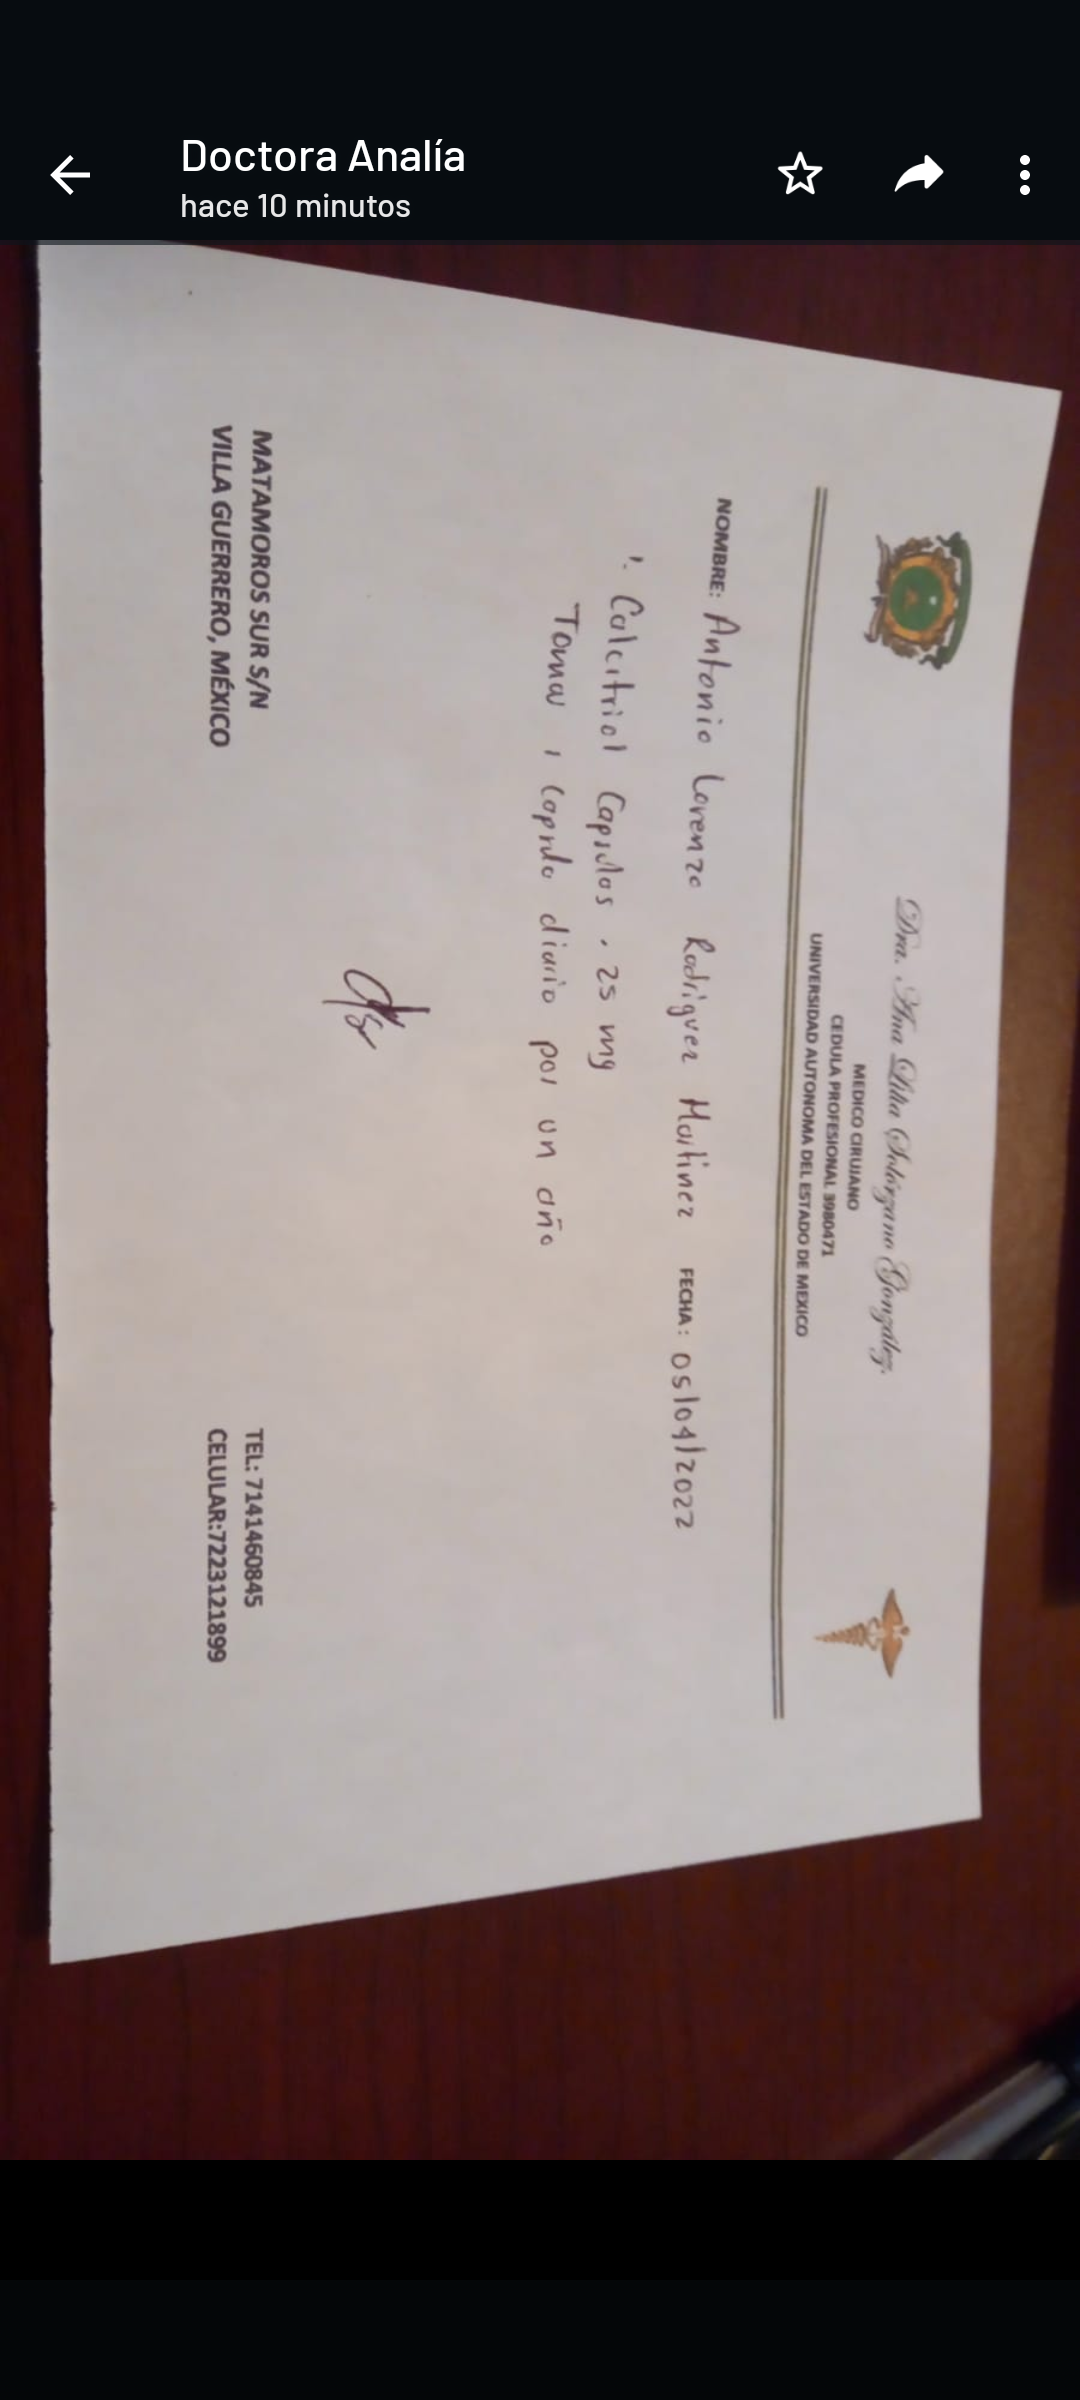 Doctora Analía
hace 10 minutos
Dra. Ana Lilia Solórzano González.
MEDICO CIRUJANO
CEDULA PROFESIONAL 3980471
UNIVERSIDAD AUTONOMA DEL ESTADO DE MEXICO
NOMBRE: Antonio Lorenzo Rodriguez Martinez FECHA: 05/04/2022
1. Calcitriol Capsulas .25 mg
Tomar 1 Capsula diario por un año
MATAMOROS SUR S/N
VILLA GUERRERO, MÉXICO
TEL: 7141460845
CELULAR:7223121899